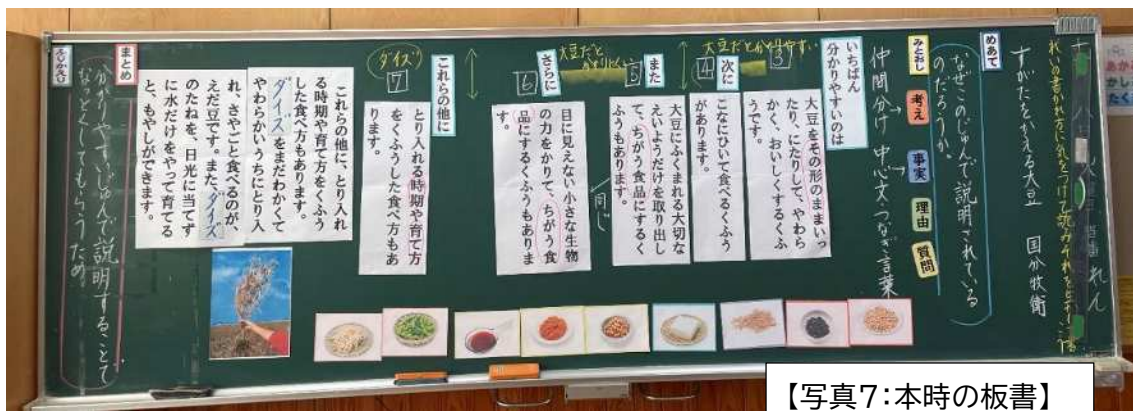 すがたをかえる大豆 国分牧衛
めあて
なぜこのじゅんで説明されている
のだろうか。
みとおし
考え
事実
理由
質問
仲間分け 中心文・つなぎ言葉
いちばん
分かりやすいのは
大豆だと分かりやすい
3
大豆をその形のままいっ
たり、にたりして、やわら
かく、おいしくするくふ
うです。
次に
4
こなにひいて食べるくふう
があります。
また
5
大豆にふくまれる大切な
えいようだけを取り出し
て、ちがう食品にするく
ふうもあります。
同じ
さらに
大豆だと
6
目に見えない小さな生物
の力をかりて、ちがう食
品にするくふうもありま
す。
これらの他に
ダイズ
7
とり入れる時期や育て方
をくふうした食べ方もあ
ります。
これらの他に、とり入れ
る時期や育て方をくふう
した食べ方もあります。
ダイズをまだわかくて
やわらかいうちにとり入
れ、さやごとゆでて食べるのが、
えだ豆です。また、ダイズ
のたねを、日光に当てず
に水だけをやって育てる
と、もやしができます。
まとめ
分かりやすいじゅんで説明することで
なっとくしてもらうため。
ふりかえり
【写真7:本時の板書】